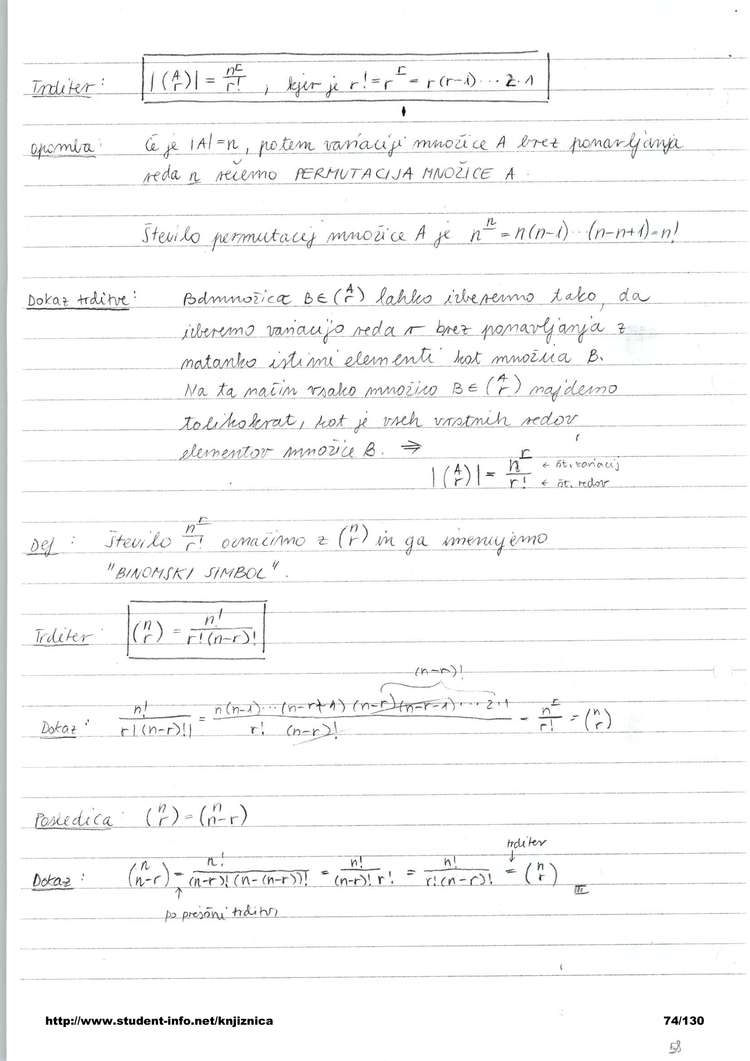 Trditev: |(A r)| = n^r/r! , kjer je r! = r^r = r(r-1)...2.1
opomba: Če je |A|=n, potem variaciji množice A brez ponavljanja
reda n rečemo PERMUTACIJA MNOŽICE A.
Število permutacij množice A je n^n = n(n-1)...(n-n+1)=n!
Dokaz trditve: Podmnožica B∈(A r) lahko izberemo tako, da
izberemo variacijo reda r brez ponavljanja z
natanko istimi elementi kot množica B.
Na ta način vsako množico B∈(A r) najdemo
tolikokrat, kot je vseh vrstnih redov
elementov množice B. ⇒
|(A r)| = n^r/r! ← št. variacij ← št. redov
Def: Število n^r/r! označimo z (n r) in ga imenujemo
"BINOMSKI SIMBOL".
Trditev (n r) = n!/r!(n-r)!
(n-r)!
Dokaz: n!/r!(n-r)! = n(n-1)...(n-r+1)(n-r)(n-r-1)...2.1/r! (n-r)! = n^r/r! = (n r)
Posledica: (n r) = (n n-r)
trditev
Dokaz: (n n-r) = n!/(n-r)!(n-(n-r))! = n!/(n-r)! r! = n!/r!(n-r)! = (n r)
po prejšni trditvi
http://www.student-info.net/knjiznica 74/130
58